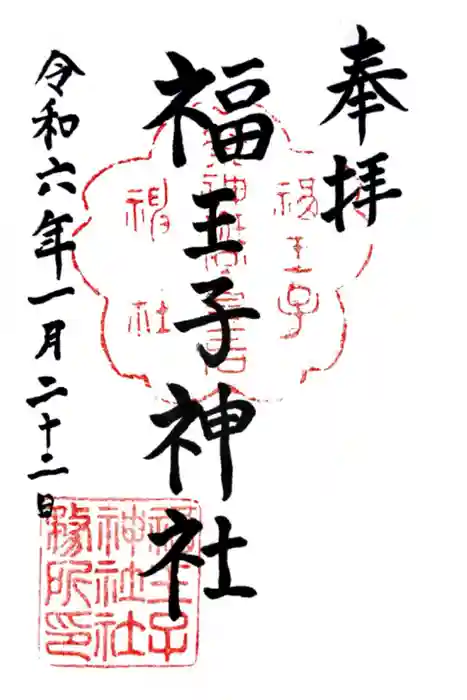 奉拝
福王子神社
令和六年一月二十二日
福王子
神社社
務所印